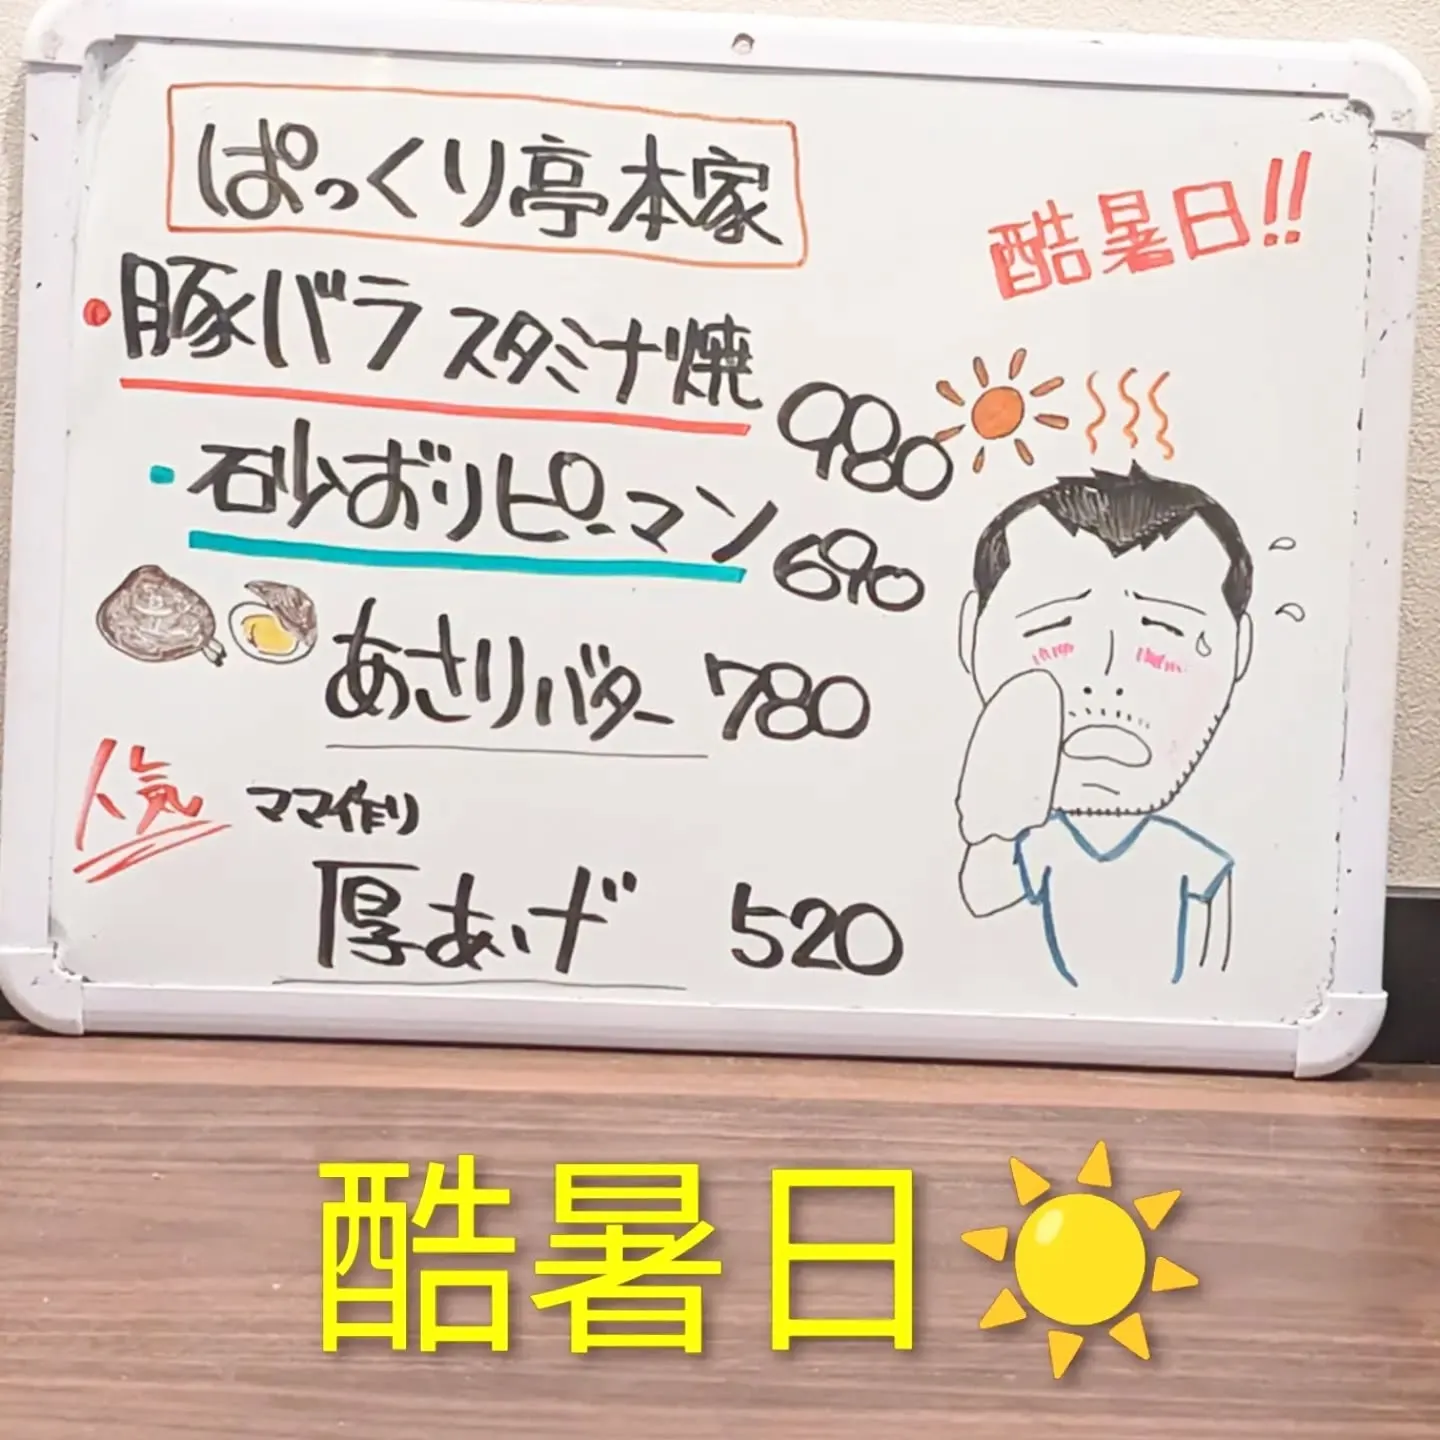 ぱっくり亭本家
酷暑日!!
・豚バラ スタミナ焼 980
・砂ずりピーマン 690
あさりバター 780
人気 ママ作り
厚あげ 520
酷暑日☀